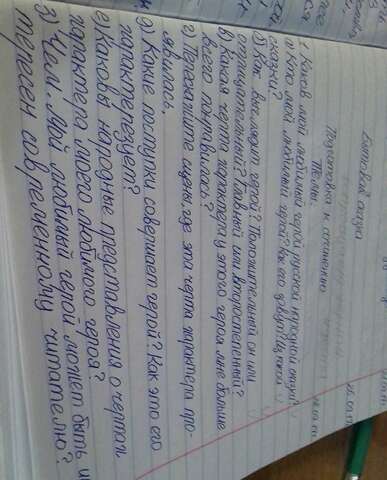 Бытовая сказка
Подготовка к сочинению
Темы.
1. Каков мой любимый герой русской народной
а) Кто мой любимый герой? Как его зовут? Из какой
сказки?
б) Как выглядит герой? Положительный он или
отрицательный? Главный или второстепенный?
в) Какая черта характера у этого героя мне больше
всего понравилась?
г) Перескажите сцены, где эта черта характера про-
явилась.
д) Какие поступки совершает герой? Как это его
характеризует?
е) Каковы народные представления о чертах
характера моего любимого героя?
з) Чем мой любимый герой может быть ин
тересен современному читателю?